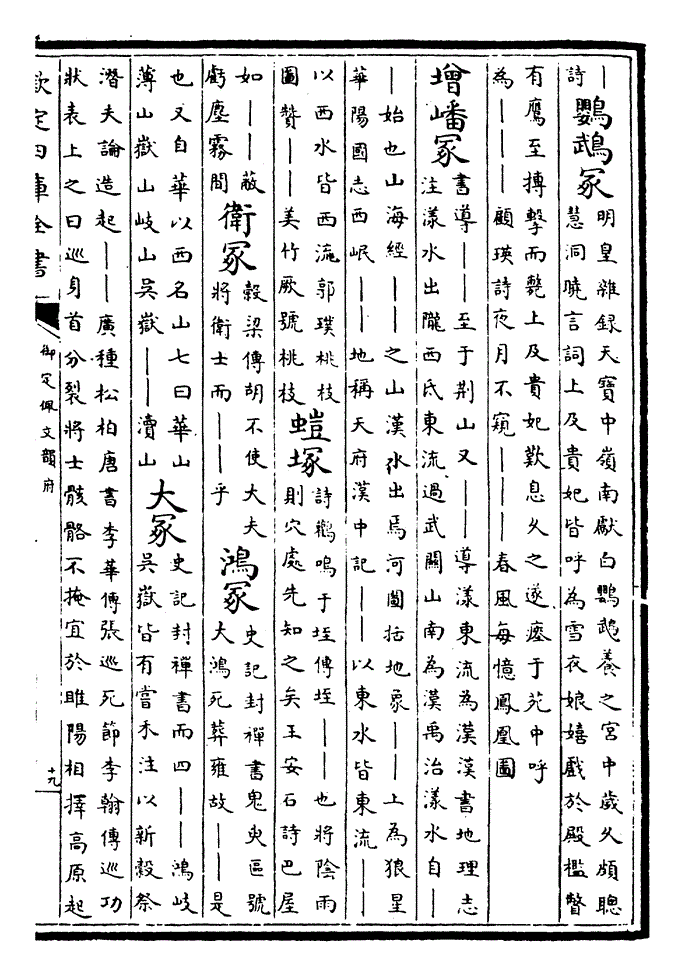 ｜
詩
鸚鵡冢
明皇雜録天寶中嶺南獻白鸚鵡養之宫中歲久頗聰
慧洞曉言詞上及貴妃皆呼為雪衣娘嬉戲於殿檻瞥
有鷹至搏擊而斃上及貴妃歎息久之遂瘞于苑中呼
為｜｜｜顧瑛詩夜月不窺｜｜｜春風每憶鳳凰圖
增嶓冢
書導｜｜至于荆山又｜｜導漾東流為漢漢書地理志
注漾水出隴西氐東流過武關山南為漢禹治漾水自｜
｜始也山海經｜｜之山漢水出焉河圖括地象｜｜上為狼星
華陽國志西岷｜｜地稱天府漢中記｜｜以東水皆東流｜｜
以西水皆西流郭璞桃枝
圖贊｜｜美竹厥號桃枝
螘塚
詩鸛鳴于垤傳垤｜｜也將陰雨
則穴處先知之矣王安石詩巴屋
如｜｜蔽
虧塵霧間
衛冢
穀梁傳胡不使大夫
將衛士而｜｜乎
鴻冢
史記封禪書鬼臾區號
大鴻死葬雍故｜｜是
也又自華以西名山七曰華山
薄山嶽山岐山吳嶽｜｜瀆山
大冢
史記封禪書而四｜｜鴻岐
吳嶽皆有嘗禾注以新穀祭
潛夫論造起｜｜廣種松柏唐書李華傳張巡死節李翰傳巡功
狀表上之曰巡身首分裂將士骸骼不掩宜於睢陽相擇高原起
欽定四庫全書
御定佩文韻府
十九